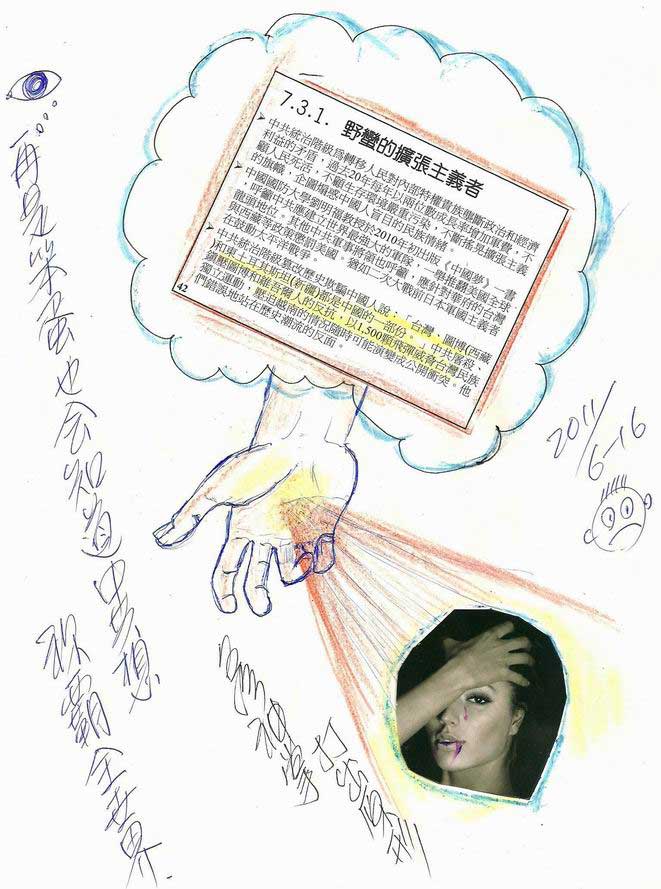 7.3.1. 野蠻的擴張主義者
➤ 中共統治階級為轉移人民對內部特權貴族壟斷政治和經濟
利益的矛盾，過去20年每年以兩位數成長率增加軍費，不
顧人民死活，不顧生存環境嚴重污染，不斷搖晃擴張主義
的旗幟，企圖煽惑中國人盲目的民族情緒。
➤ 中國國防大學劉明福教授於2010年初出版《中國夢》一書
，呼籲中共應建立世界最強大的軍隊，一舉推翻美國全球
龍頭地位。其他中共軍事將領也呼籲，應針對華府的台灣
與西藏等政策懲罰美國。猶如二次大戰前日本軍國主義者
在鼓動太平洋戰爭。
➤ 中共統治階級篡改歷史欺騙中國人說：「台灣、圖博(西藏
)和東土耳其斯坦(新疆)都是中國的一部份。」中共屠殺、
鎮壓圖博和維吾爾人的反抗，以1,500顆飛彈威脅台灣民族
獨立運動，壓迫越南的情況隨時可能演變成公開衝突。他
們錯誤地站在歷史潮流的反面。
42
2011/6-16
再是笨蛋也会知道中共想
称霸全世界.